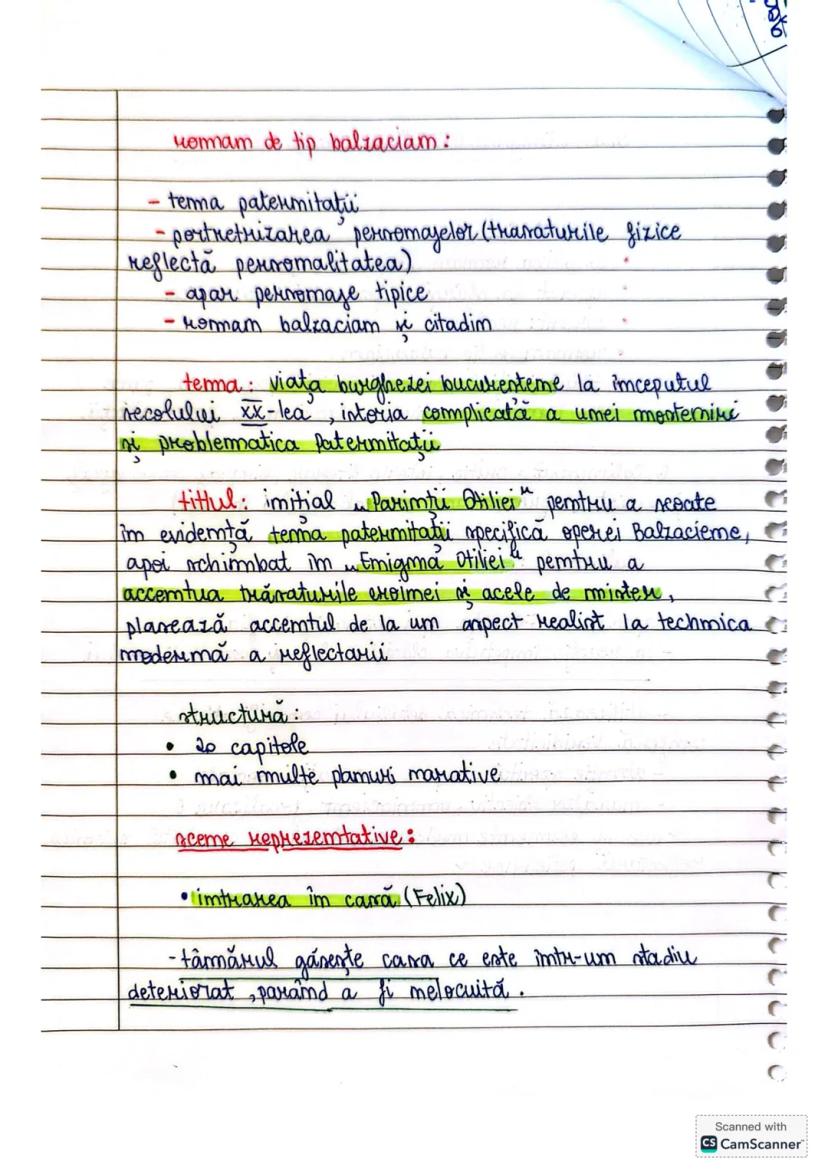 roman de tip balzacian:
- tema paternitații
- portretrizarea personajelor (trasaturile fizice
reflectă personalitatea)
- apar personaje tipice
- roman balzacian și citadin
tema: viața burgheziei bucureștene la începutul
secolului XX-lea, istoria complicată a unei moșteniri
și problematica Paternitații
titlul: inițial „Parinții Otiliei" pentru a scoate
în evidență tema paternitații specifică operei Balzaciene,
apoi schimbat în „Enigma Otiliei" pentru a
accentua trăsaturile eroinei și acele de mister,
plasează accentul de la un aspect realist la technica
modernă a reflectarii
structură:
• 20 capitole
• mai multe planuri narative
scene reprezentative:
• intrarea în casă (Felix)
- tânărul găsește casa ce este într-un stadiu
deteriorat, parând a fi nelocuită.
Scanned with
CS CamScanner